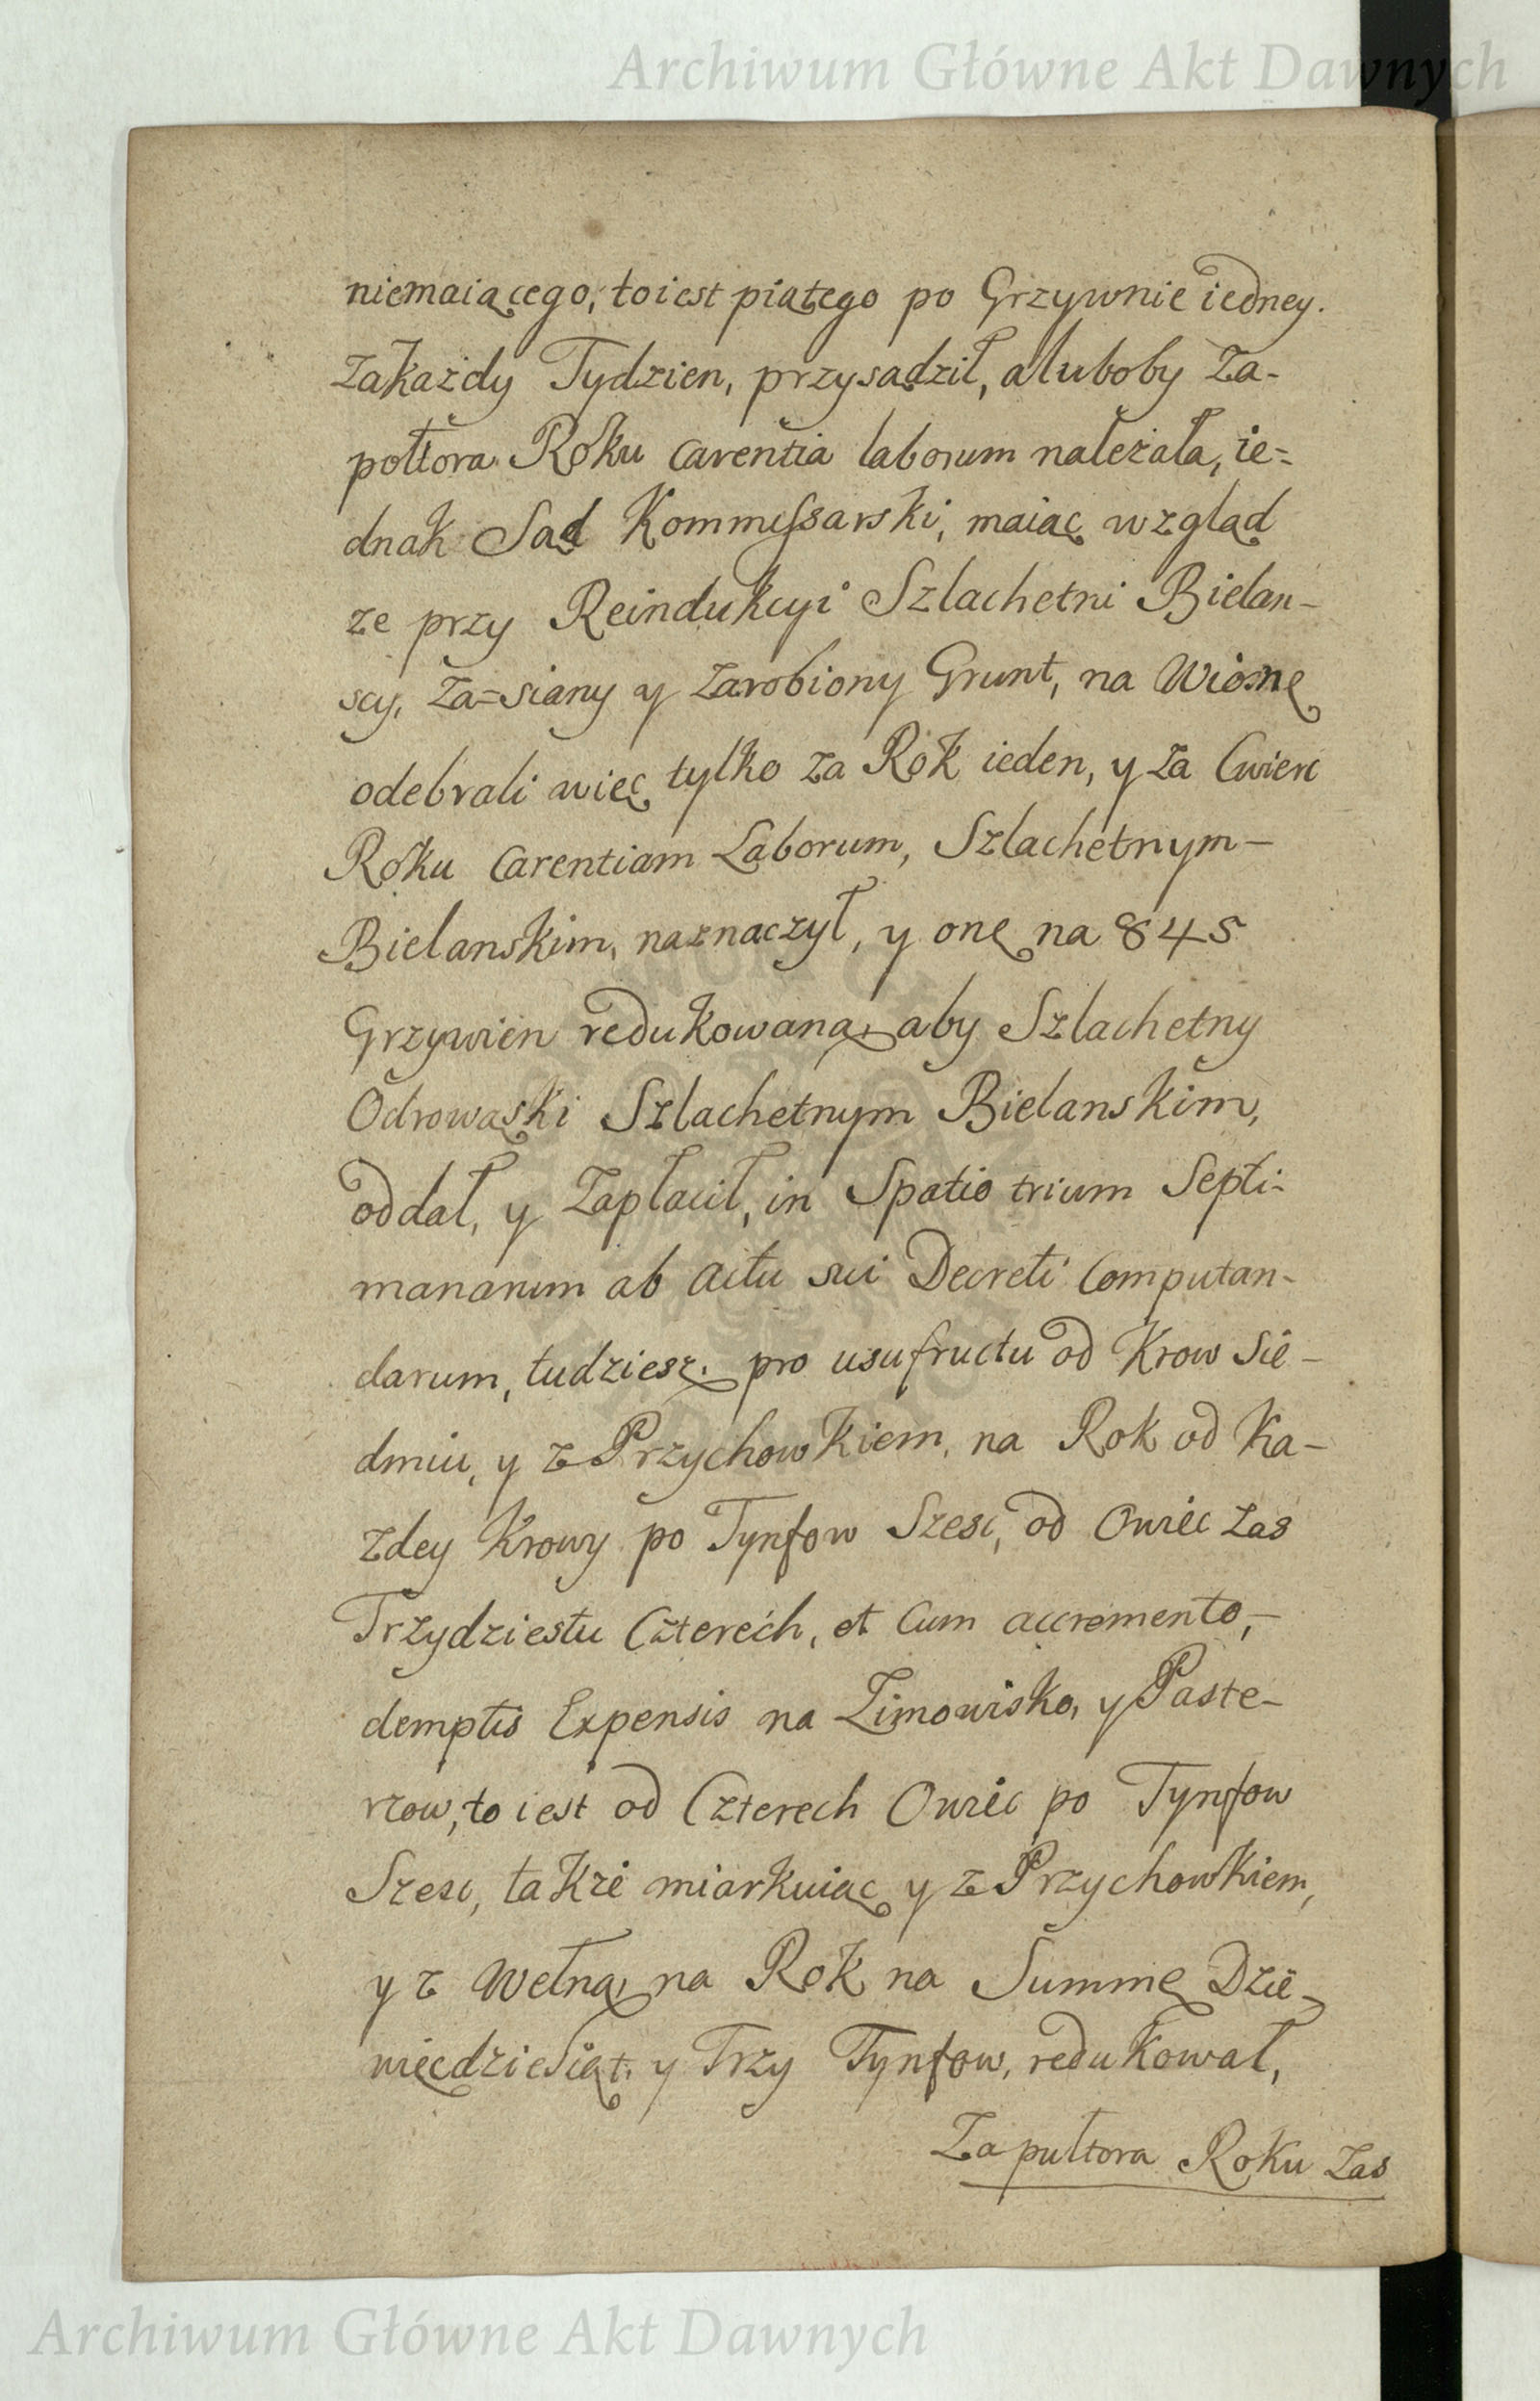 Archiwum Główne Akt Dawnych
niemaiącego, toiest piątego po Grzywnie iedney.
Zakazdy Tydzien, przysądził, aluboby Za-
połtora Roku carentia laborum należała, ie=
dnak Sąd Kommissarski, maiąc wzgląd
ze przy Reindukcyi Szlachetni Bielan-
scy, Za=siany y Zarobiony Grunt, na Wiosnę
odebrali więc tylko za Rok ieden, y za Cwierc
Roku Carentiam Laborum, Szlachetnym-
Bielanskim, naznaczył, y onę na 845
Grzywien redukowaną, aby Szlachetny
Odrowąski Szlachetnym Bielanskim,
oddał, y Zapłacił, in Spatio trium Septi-
manarum ab actu sui Decreti Computan-
darum, tudziesz. pro usufructu od Krow Sie-
dmiu, y z Przychowkiem, na Rok od Ka-
zdey Krowy po Tynfow Szesc, od Owiec zas
Trzydziestu Czterech, et Cum accremento,-
demptis Expensis na Zimowisko, y Paste-
rzow, to iest od Czterech Owiec po Tynfow
Szesc, takze miarkuiąc y z Przychowkiem,
y z Wełną, na Rok na Summę Dzie-
więcdziesiąt. y Trzy Tynfow, redukował,
Za pułtora Roku zas
Archiwum Główne Akt Dawnych